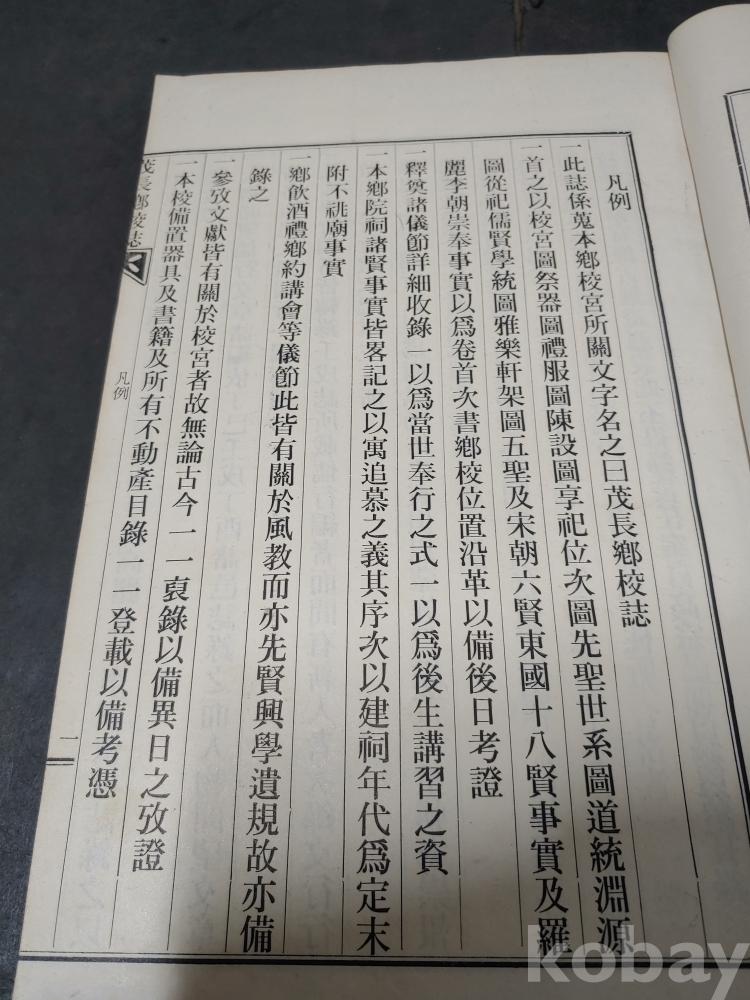 凡例
一此誌係蒐本鄕校宮所關文字名之曰茂長鄕校誌
一首之以校宮圖祭器圖禮服圖陳設圖享祀位次圖先聖世系圖道統淵源
圖從祀儒賢學統圖雅樂軒架圖五聖及宋朝六賢東國十八賢事實及羅
麗李朝崇奉事實以爲卷首次書鄕校位置沿革以備後日考證
一釋奠諸儀節詳細收錄一以爲當世奉行之式一以爲後生講習之資
一本鄕院祠諸賢事實皆畧記之以寓追慕之義其序次以建祠年代爲定末
附不祧廟事實
一鄕飮酒禮鄕約講會等儀節此皆有關於風教而亦先賢興學遺規故亦備
錄之
一參攷文獻皆有關於校宮者故無論古今一一裒錄以備異日之攷證
一本校備置器具及書籍及所有不動產目錄一一登載以備考憑
茂長鄕校誌
凡例
一
kobay